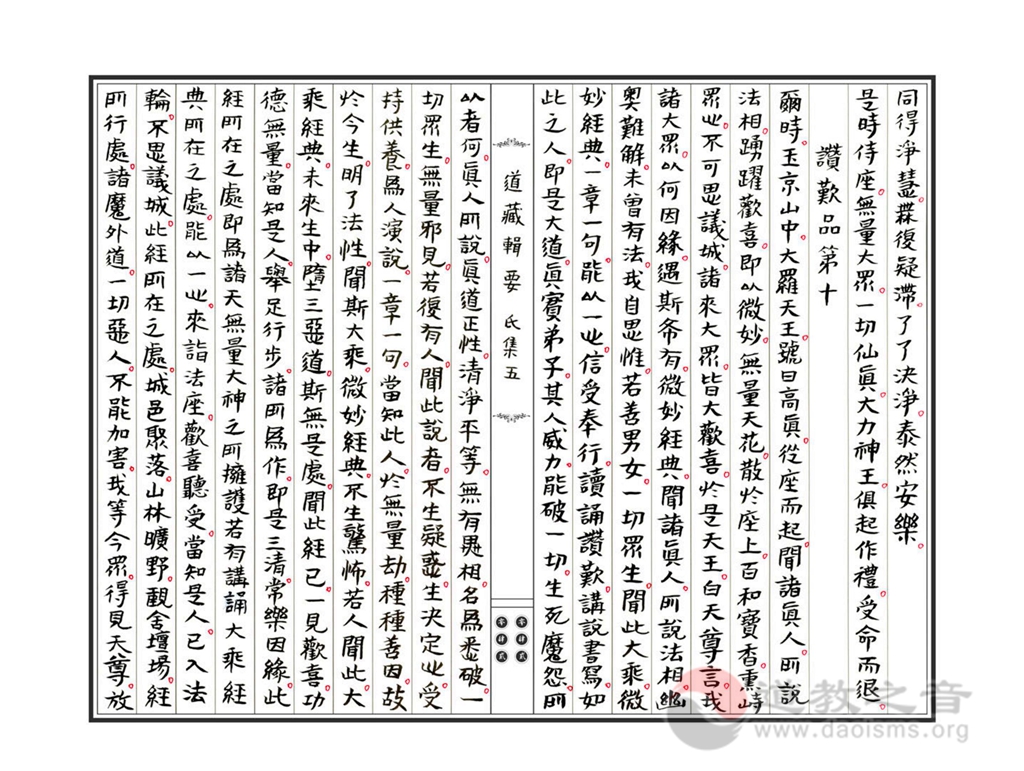 同得淨慧蠲復疑滯了了決淨泰然安樂
是時侍座無量大眾一切仙眞大力神王俱起作禮受命而退
讚歎品第十
爾時玉京山中大羅天王號曰高眞從座而起聞諸眞人所說
法相踴躍歡喜即以微妙無量天花散於座上百和寶香熏
眾心不可思議城諸來大眾皆大歡喜於是天王白天尊言我
諸大眾以何因緣遇斯希有微妙經典聞諸眞人所說法相幽
奧難解未曾有法我自思惟若善男女一切眾生聞此大乘微
妙經典一章一句能以一心信受奉行讀誦讚歎講說書寫如
此之人即是大道眞寶弟子其人威力能破一切生死魔怨所
道藏輯要 氐集五
以者何眞人所說眞道正性清淨平等無有異相名爲悉破一
切眾生無量邪見若復有人聞此說者不生疑惑生決定心受
持供養爲人演說一章一句當知此人於無量劫種種善因故
於今生明了法性聞斯大乘微妙經典不生驚怖若人聞此大
乘經典未來生中墮三惡道斯無是處聞此經已一見歡喜功
德無量當知是人舉足行步諸所爲作即是三清常樂因緣此
經所在之處即爲諸天無量大神之所擁護若有講誦大乘經
典所在之處能以一心來詣法座歡喜聽受當知是人已入法
輪不思議城此經所在之處城邑聚落山林曠野觀舍壇場經
所行處諸魔外道一切惡人不能加害我等今眾得見天尊放
道教之音
www.daoisms.org